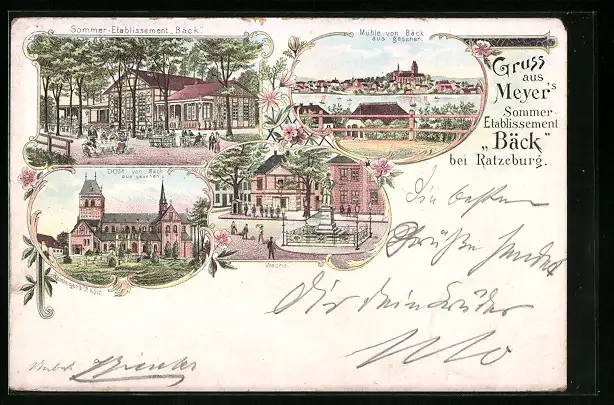 Sommer-Etablissement „Bäck."
Mühle von Bäck
aus gesehen.
Gruss
aus
Meyer's
Sommer-
Etablissement
„Bäck"
bei Ratzeburg.
DOM von Bäck
aus gesehen.
Wache.
Die besten
Grüße sendet
Dir dein Bruder
Otto